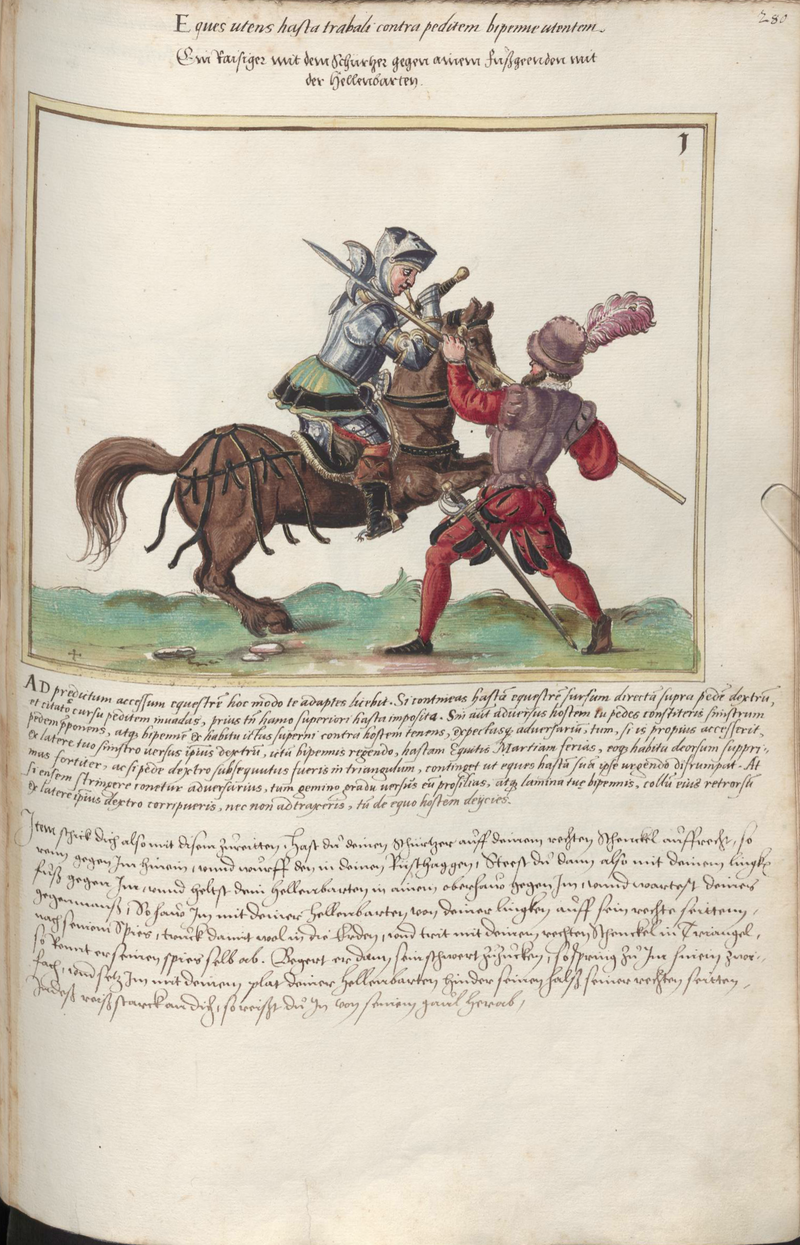 280
Eques utens hasta trabali contra peditem bipenne utentem.
Ein Raisiger mit dem Schürtzer gegen ainem Fußgeenden mit
der Hellenbarten.
1
AD predictum accessum equestrē hoc modo te adaptes licebit. Si contineas hastā equestrē sursum directā supra pedē dextrū,
et citato cursu peditem inuadas, prius tn̄ hamo superiori hasta imposita. Sin aūt aduersus hostem tu pedes constiteris sinistrum
pedem pponens, atq bipennē ex habitu ictus superni contra hostem tenens, expectesq aduersariū, tum, si is propius accesserit,
ex latere tuo sinistro uersus ipius dextrū, ictū bipennis regendo, hastam Equitis Martiam ferias, eoq habitu deorsum suppri-
mas fortiter, ac si pede dextro subsequutus fueris in triangulum, continget ut eques hastā suā ipse urgendo disrumpat. At
si ensem stringere conetur aduersarius, tum gemino gradu uersus eū prosilias, atq lamina tuę bipennis, collū eius retrorsū
ex latere ipius dextro corripueris, nec non adtraxeris, tū de equo hostem deijcies.
Item schick dich also mit disem zureitten, Hast du deinen Schürtzer auff deinem rechten Schenckel auffrecht, so
renn gegen Im hinein, vnnd würff den in deinen Rüsthaggen, Steest du dann also mit deinem lingkē
fuß gegen Im, vnnd heltst dein Hellenbarten in ainem oberhaw gegen Im, vnnd wartest deines
gegenmanß, So haw Im mit deiner Hellenbarten von deiner lingken auff sein rechte seitten,
nach seinem Spies, truck damit wol in die Erden, vnd trit mit deinem rechten Schenckel in Triangel,
so rennt er seinen spies selb ab. Begert er dann sein schwert zuzucken, so spring zu Im hinein zwi-
fach, vnnd setz Im mit deinem plat deiner Hellenbarten hinder seinen halß seiner rechten seitten,
Indeß reiß starck an dich, so reißt du In von seinem gaul herab,